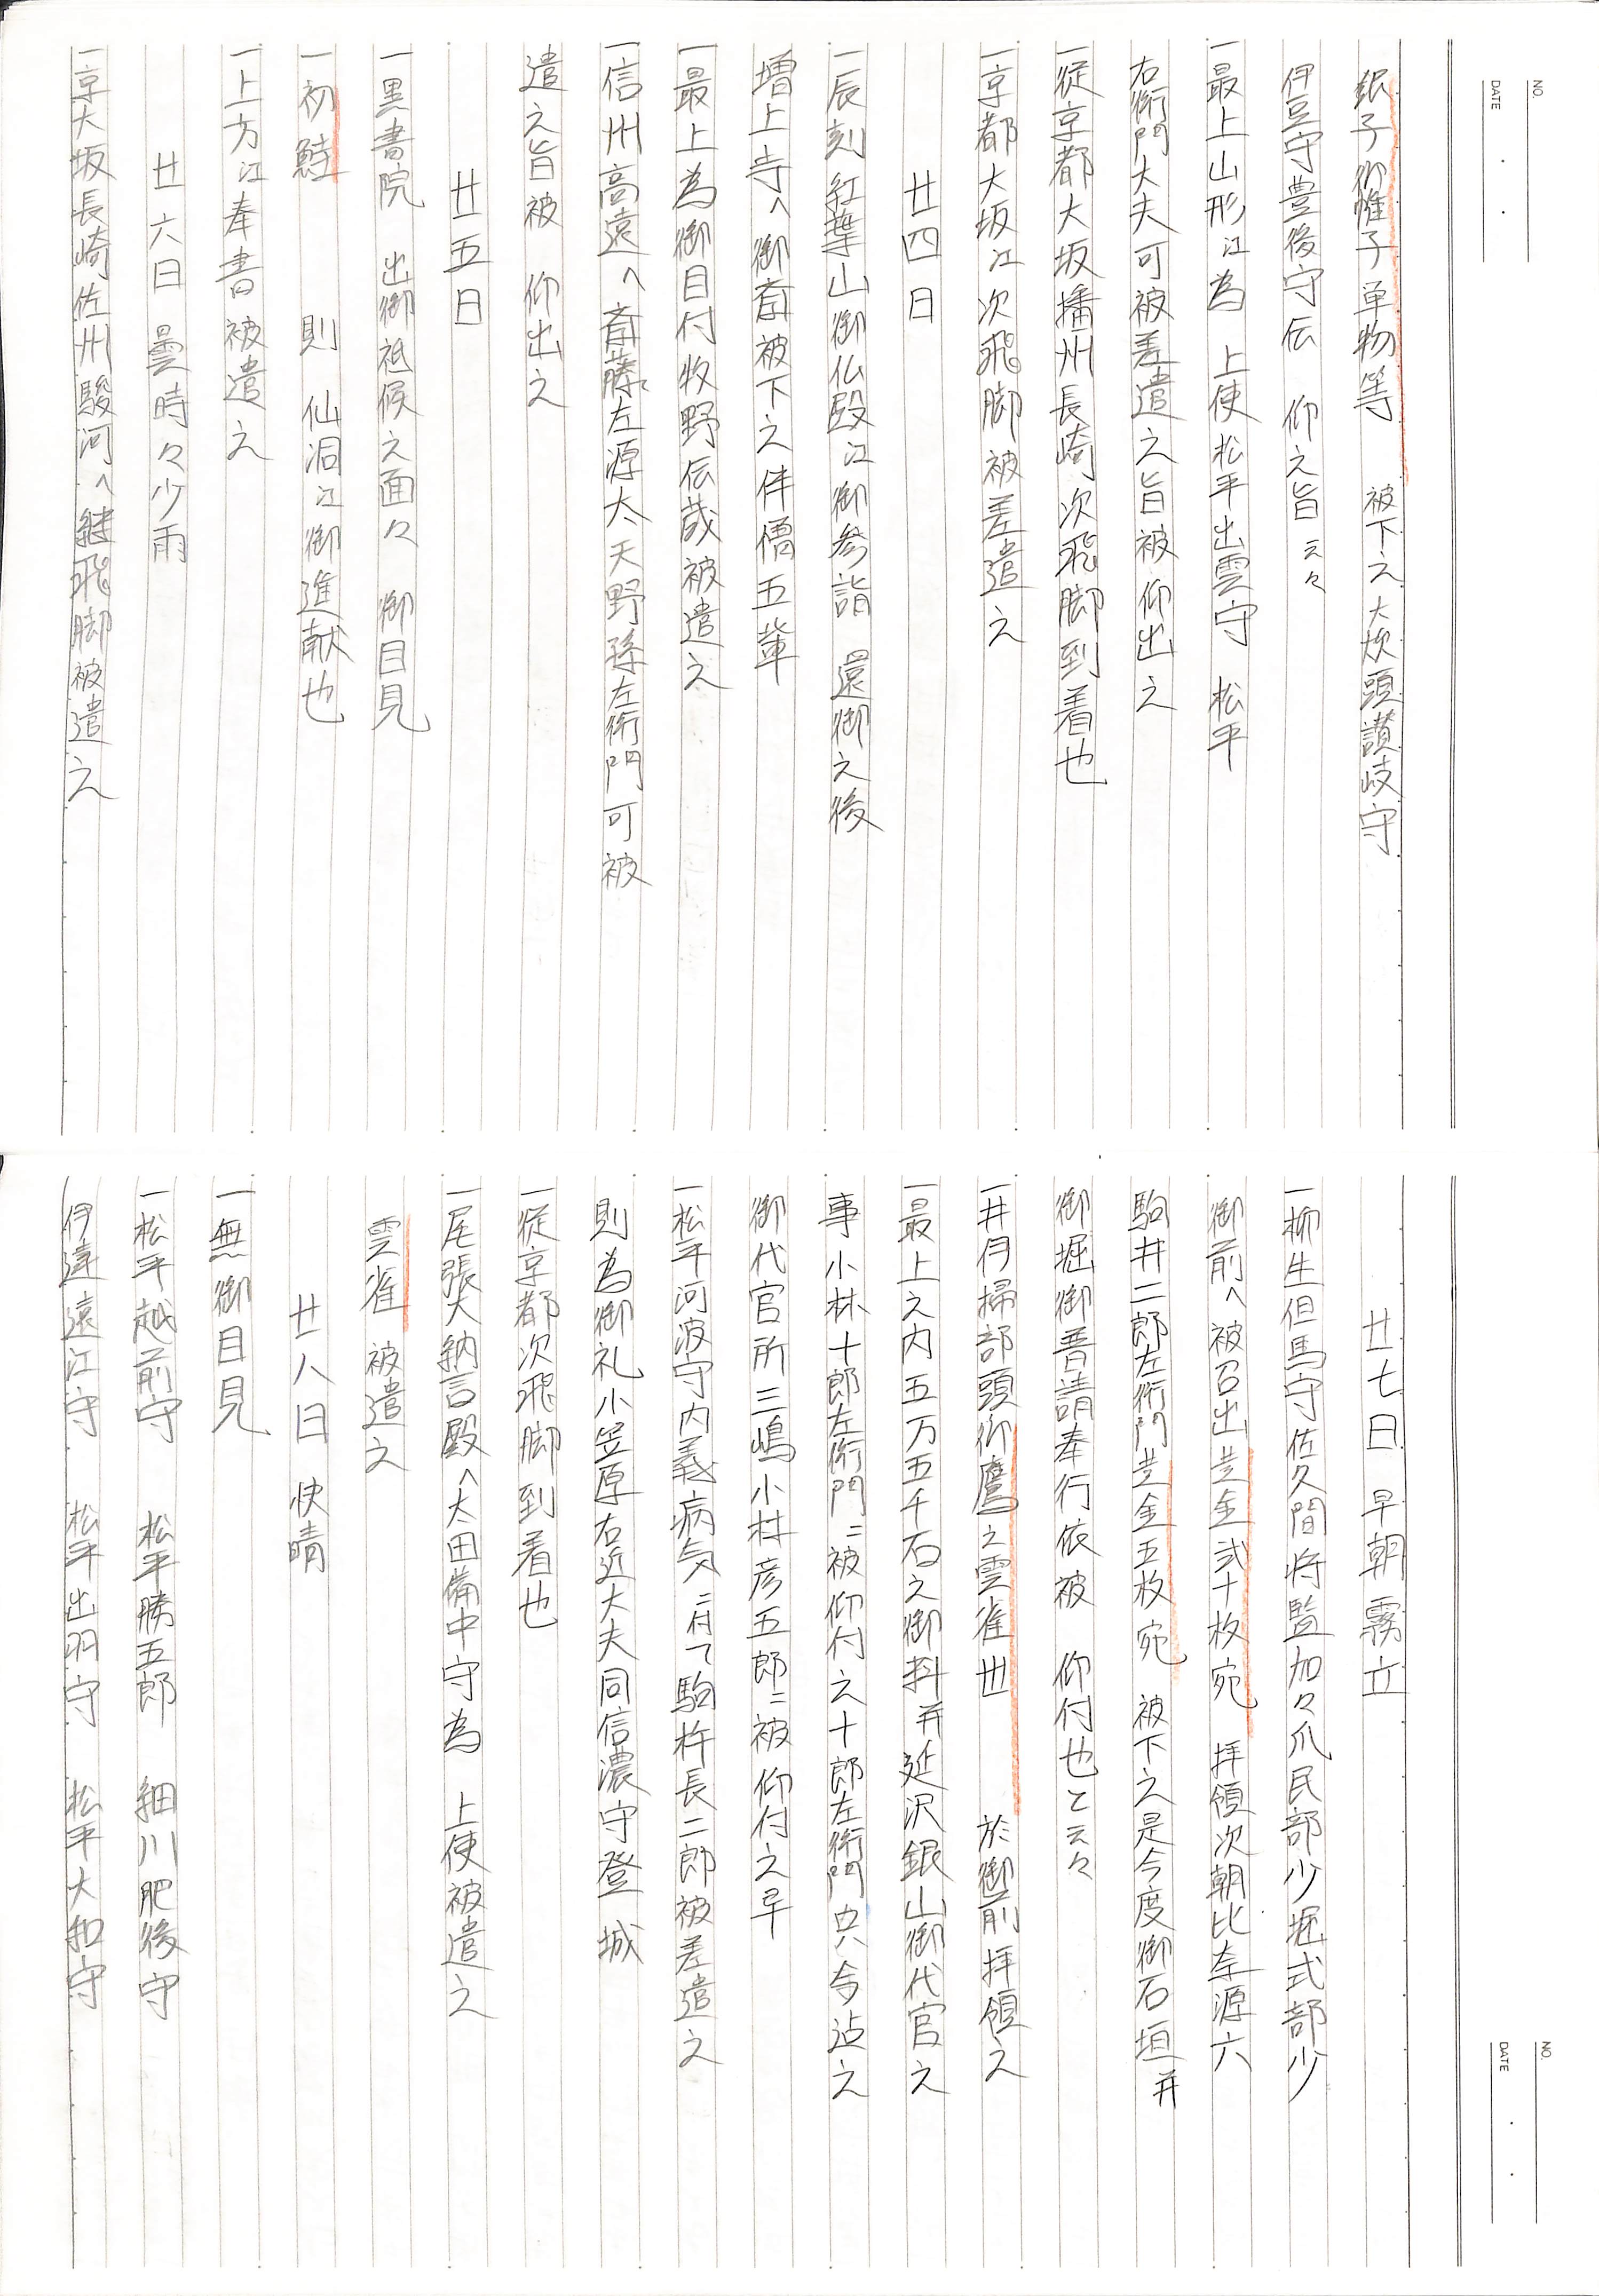 NO.
DATE
銀子御帷子単物等　被下之大炊頭讃岐守
伊豆守豊後守伝　仰之旨云々
一最上山形江為　上使松平出雲守　松平
右衛門大夫可被差遣之旨被仰出之
一従京都大坂播州長崎次飛脚到着也
一京都大坂江次飛脚被差遣之
廿四日
一辰刻紅葉山御仏殿江御参詣　還御之後
増上寺へ御斎被下之伴僧五輩
一最上為御目付牧野伝蔵被遣之
一信州高遠へ斎藤左源太天野孫左衛門可被
遣之旨被　仰出之
廿五日
一黒書院　出御祗候之面々　御目見
一初鮭　則　仙洞江御進献也
一上方江奉書被遣之
廿六日　曇時々少雨
一京大坂長崎佐州駿河へ継飛脚被遣之
NO.
DATE
廿七日　早朝霧立
一柳生但馬守佐久間将監加々爪民部少堀式部少
御前へ被召出黄金弐十枚宛　拝領次朝比奈源六
駒井二郎左衛門黄金五枚宛　被下之是今度御石垣并
御堀御普請奉行依被　仰付也と云々
一井伊掃部頭御鷹之雲雀卅　於御前拝領之
一最上之内五万五千石之御料并延沢銀山御代官之
事小林十郎左衛門ニ被仰付之十郎左衛門只今迠之
御代官所三嶋小林彦五郎ニ被仰付之早
一松平河波守内義病気ニ付て駒杵長二郎被差遣之
則為御礼小笠原右近大夫同信濃守登　城
一従京都次飛脚到着也
一尾張大納言殿へ太田備中守為　上使被遣之
雲雀　被遣之
廿八日　快晴
一無御目見
一松平越前守　松平勝五郎　細川肥後守
伊達遠江守　松平出羽守　松平大和守